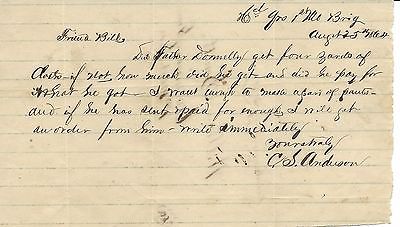 Hd Qrs 1st Md Brig
Augst 25th 1864
Friend Bill
Did Father Donnelly get four yards of
cloth - if not how much did he get and did he pay for
what he got - I want enough to make a pair of pants -
and if he has not paid for enough, I will get
an order from him - write immediately
Yours truly
C. S. Anderson